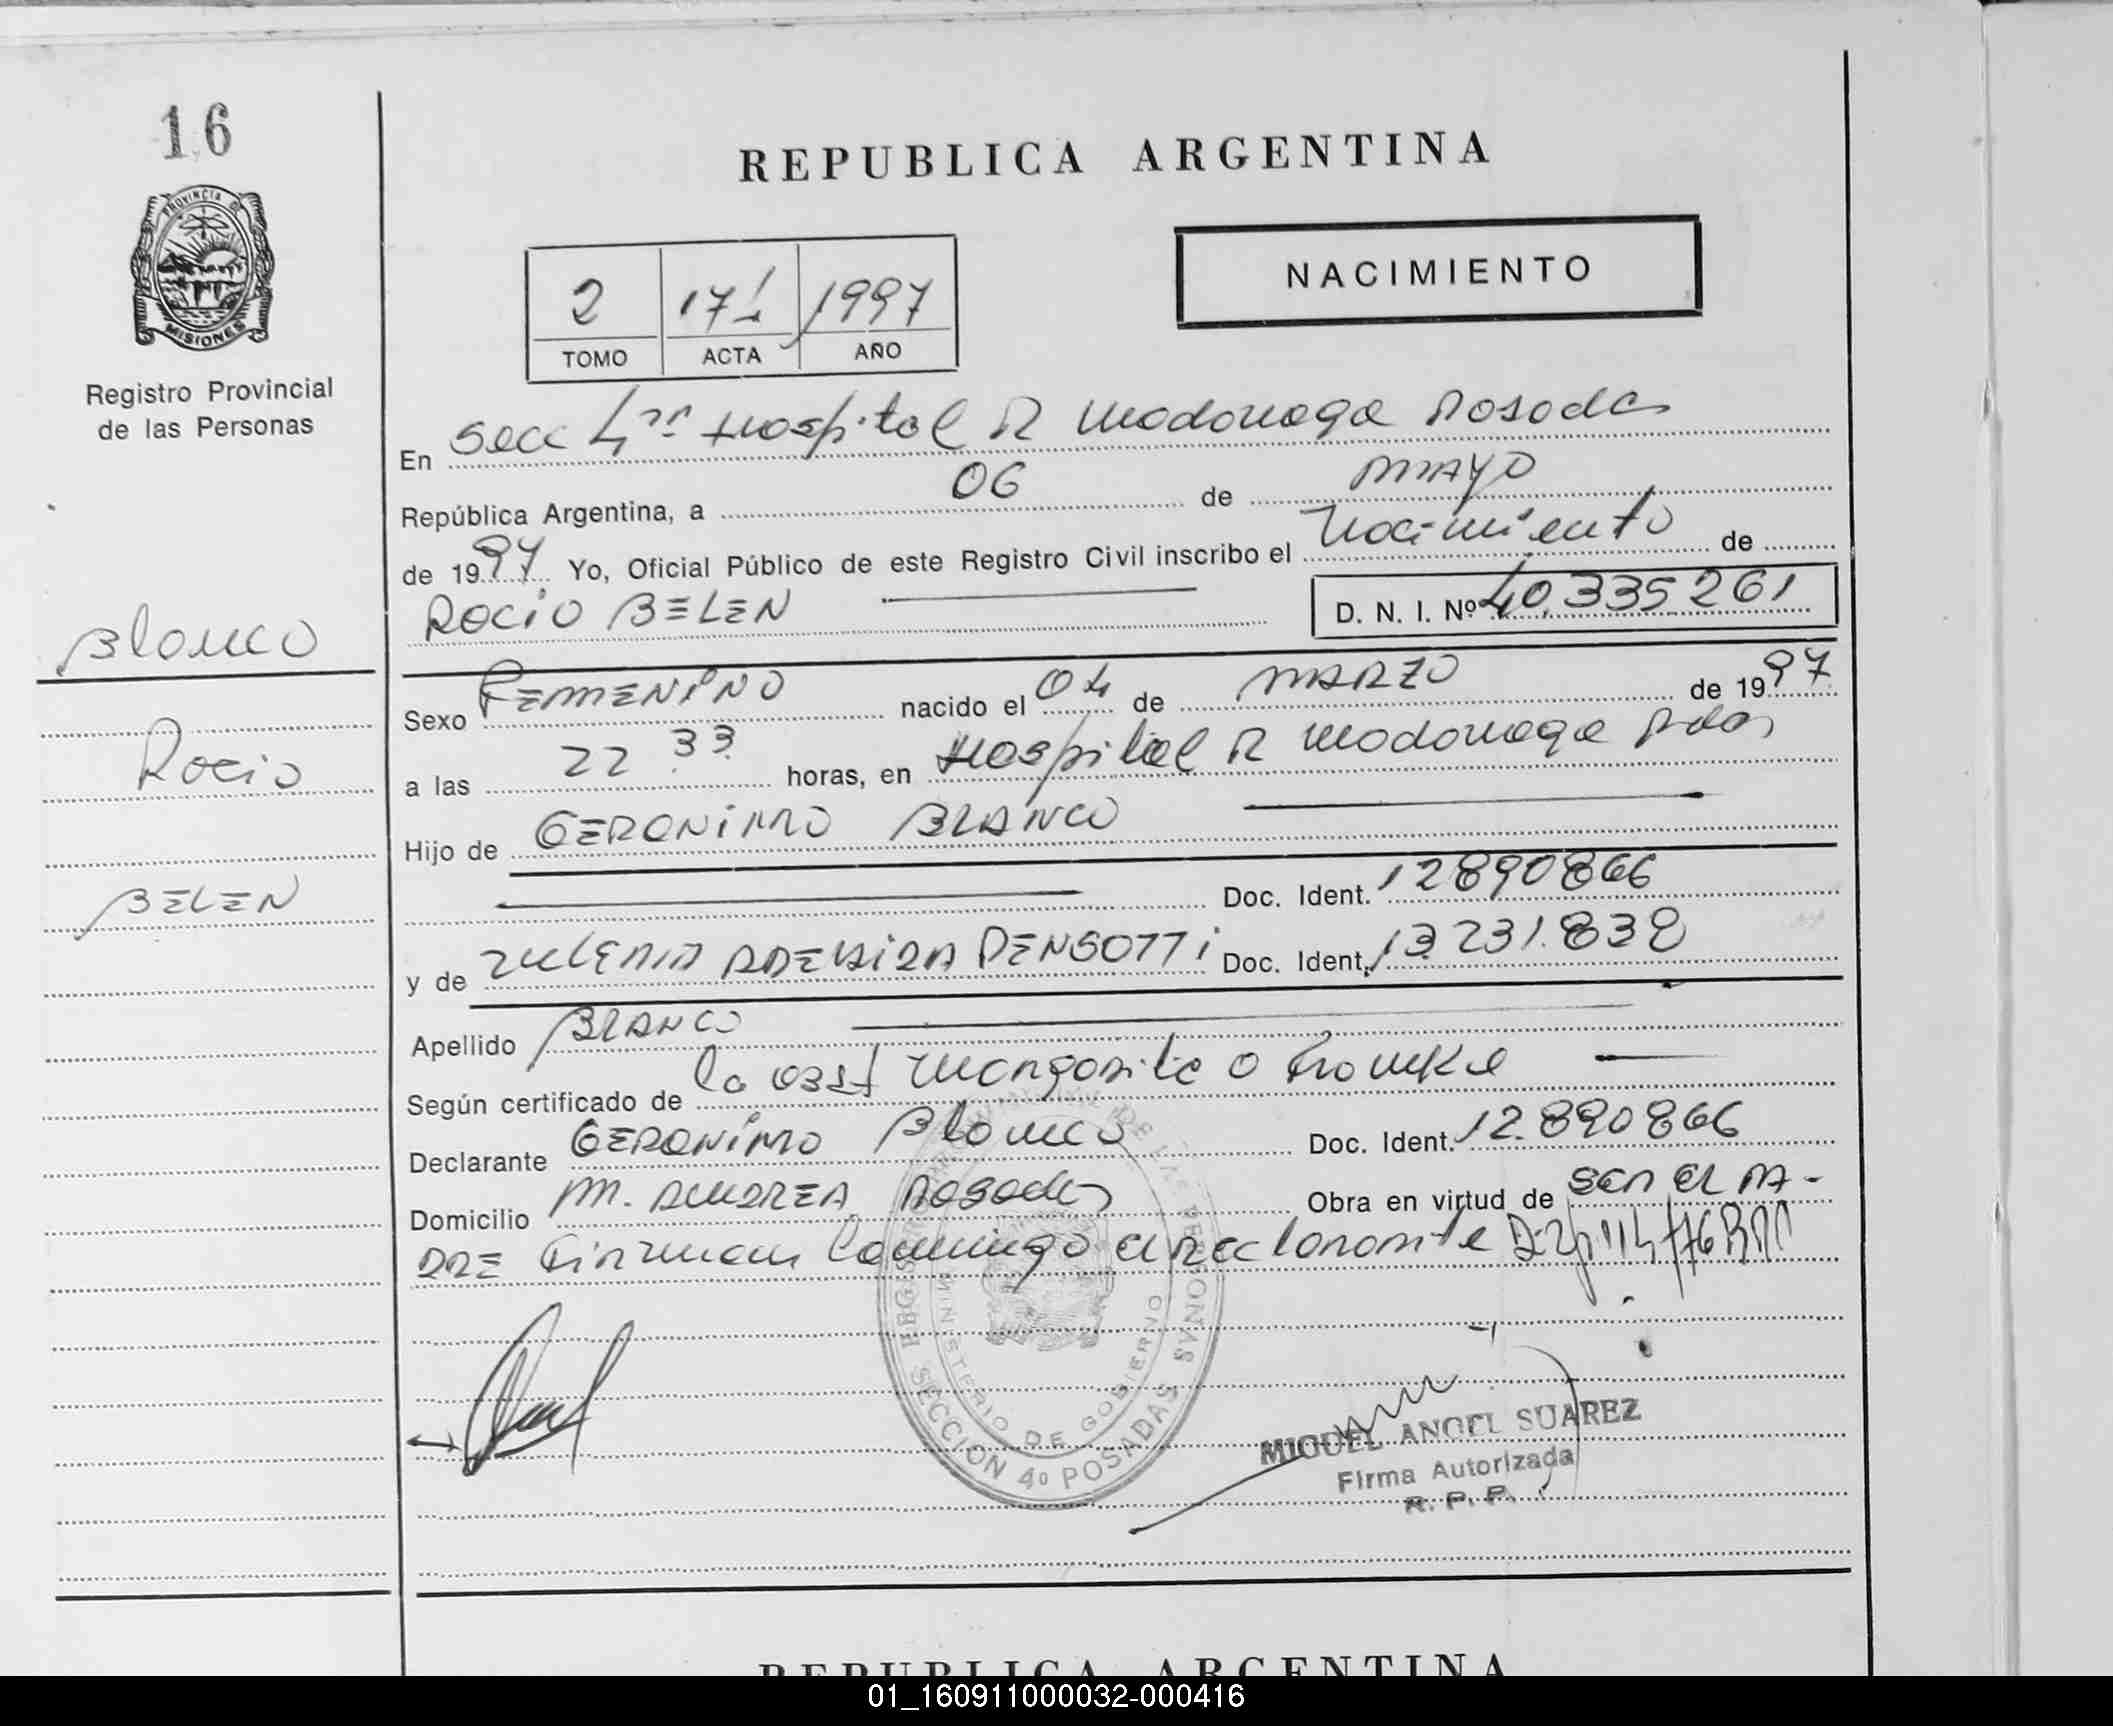 16
PROVINCIA DE
MISIONES
Registro Provincial
de las Personas
REPUBLICA ARGENTINA
NACIMIENTO
2 171 1997
TOMO ACTA AÑO
En Secc 4ta Hospital R Madariaga Posadas
República Argentina, a 06 de MAYO
de 1997 Yo, Oficial Público de este Registro Civil inscribo el Nacimiento de
ROCIO BELEN D. N. I. Nº 40.335261
Blanco
Rocio
BELEN
Sexo FEMENINO nacido el 04 de MARZO de 1997
a las 22 33 horas, en Hospital R Madariaga Pdas
Hijo de GERONIMO BLANCO
Doc. Ident. 12890866
y de DENSOTTI Doc. Ident. 13.231.838
Apellido BLANCO
Según certificado de la Margarita
Declarante GERONIMO Blanco Doc. Ident. 12.890866
Domicilio Posadas Obra en virtud de ser el PA-
DRE el declarante
REGISTRO PROVINCIAL DE LAS PERSONAS
MINISTERIO DE GOBIERNO
SECCION 4º POSADAS
MIGUEL ANGEL SUAREZ
Firma Autorizada
R. P. P.
REPUBLICA ARGENTINA
01_160911000032-000416